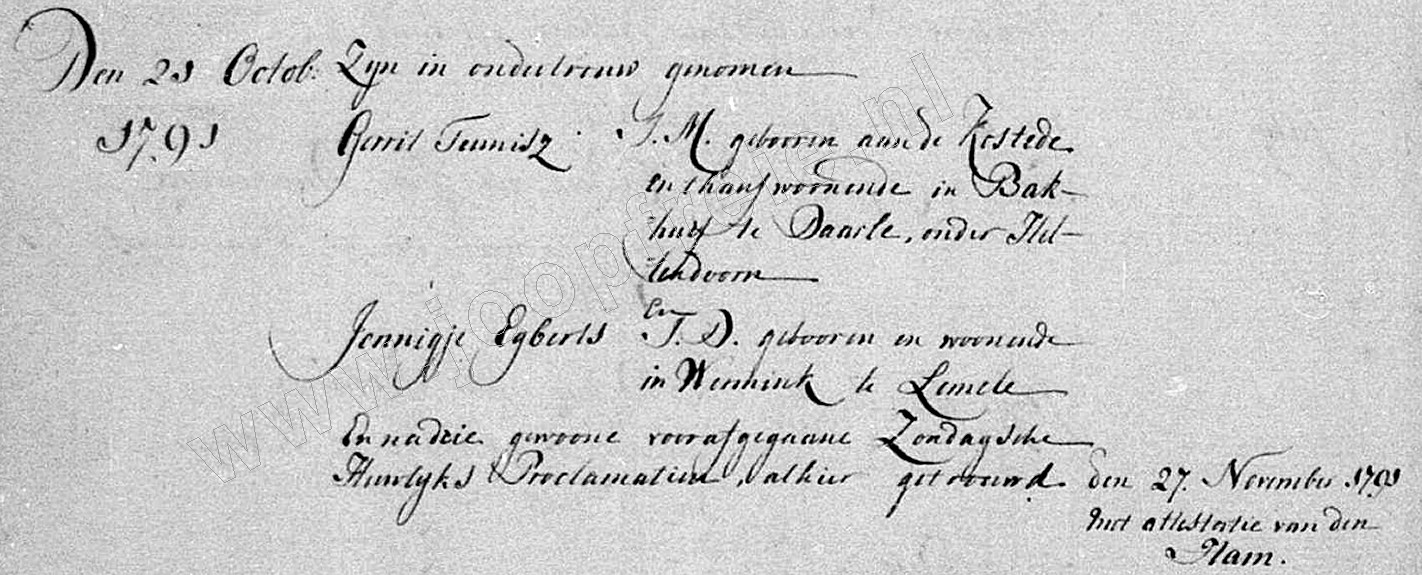 Den 21 Octob: Zijn in ondertrouw genomen
1791 Gerrit Teunisz: J. M. gebooren aan de Kostede
en thans woonende in Bak-
huis te Daarle, onder Hel-
lendoorn
En
Jennigje Egberts J. D. gebooren en woonende
in Wennink te Lemele
En na drie gewoone voorafgegaane Zondagsche
Huwlijks Proclamatien, alhier getrouwd den 27. November 1791
met attestatie van den
Ham.
www.joopfreje.nl